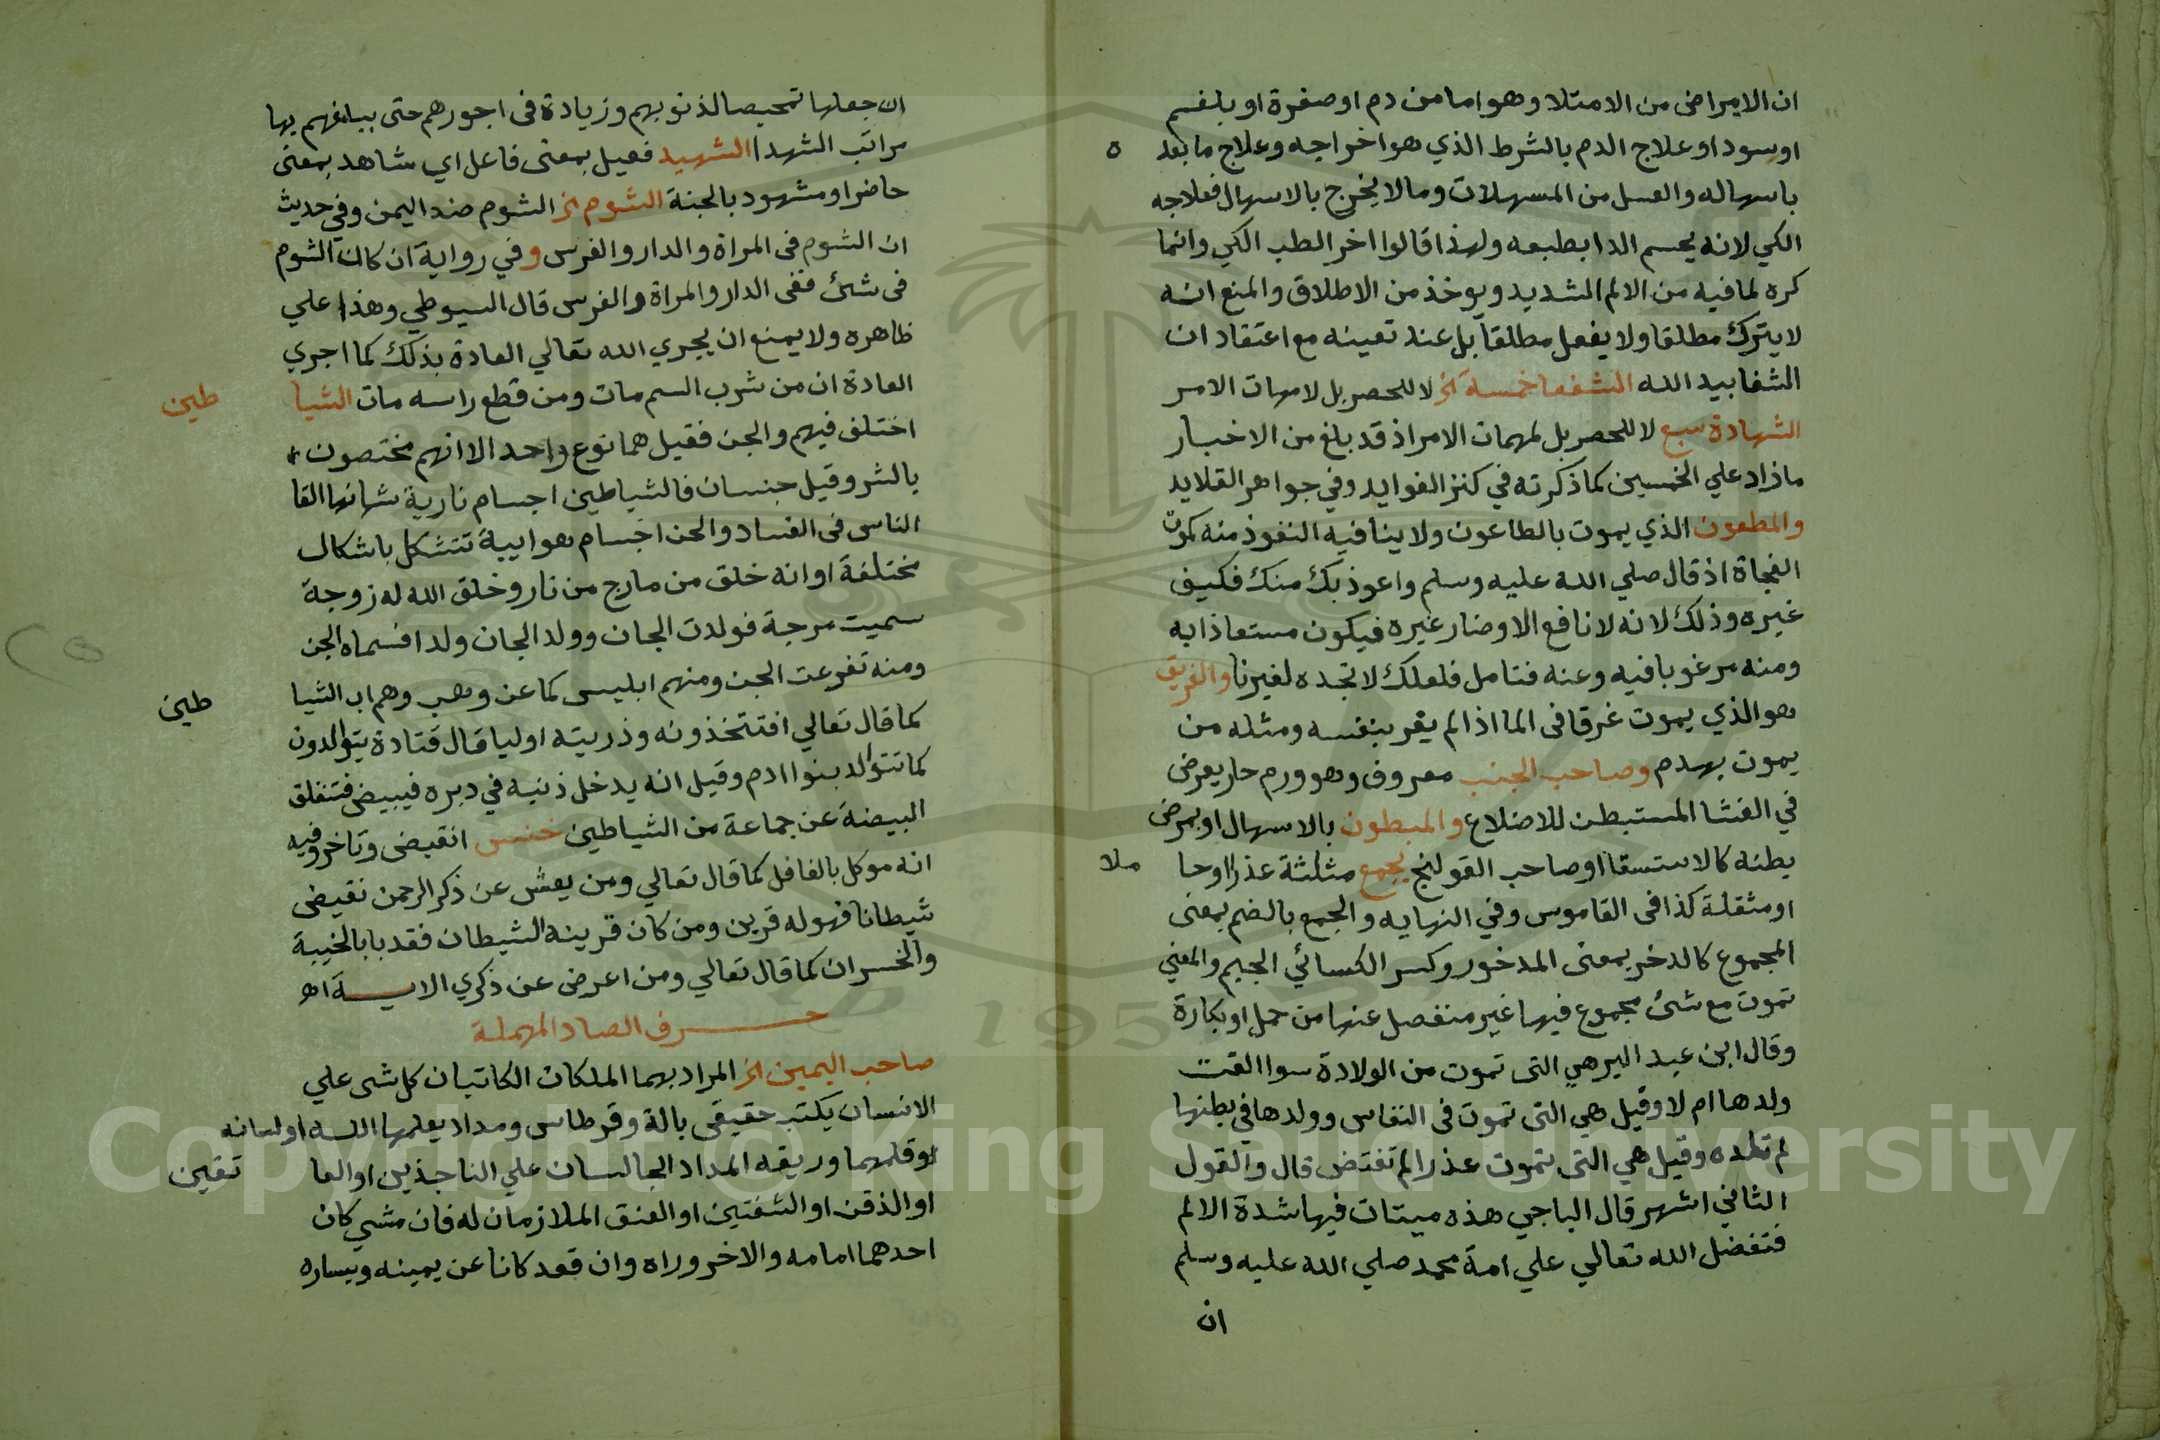 ان الامراض من الامتلا وهو اما من دم او صفرة او بلغم
او سودا وعلاج الدم بالشرط الذي هو اخراجه وعلاج ما بعد ه
باسهاله والعسل من المسهلات وما لا يخرج بالاسهال فعلاجه
الكي لانه يحسم الدا بطبعه ولهذا قالوا اخر الطب الكي وانما
كره لما فيه من الالم الشديد ويوخذ من الاطلاق والمنع انه
لا يترك مطلقا ولا يفعل مطلقا بل عند تعينه مع اعتقاد ان
الشفا بيد الله الشفعا خمسة الخ لا للحصر بل لامهات الامر
الشهادة سبع لا للحصر بل لمهمات الامر اذ قد بلغ من الاخبار
ما زاد علي الخمسين كما ذكرته في كنز الفوايد وفي جواهر القلايد
والمطعون الذي يموت بالطاعون ولا ينافيه النفوذ منه كموت
الفجاة اذ قال صلي الله عليه وسلم واعوذ بك منك فكيف
غيره وذلك لانه لا نافع الا وضار غيره فيكون مستعاذا به
ومنه مرغوبا فيه وعنه فتامل فلعلك لا تجده لغيرنا والغريق
هو الذي يموت غرقا في الما اذا لم يغر بنفسه ومثله من
يموت بهدم وصاحب الجنب معروف وهو ورم حار يعرض
في الغشا المستبطن للاضلاع والمبطون بالاسهال او بمرض
بطنه كالاستسقا او صاحب القولنج بجمع مثلثة عذرا او حا ملا
او مثقلة كذا في القاموس وفي النهايه والجمع بالضم بمعنى
المجموع كالدخر بمعنى المدخور وكسر الكسائي الجيم والمعني
تموت مع شئ مجموع فيها غير منفصل عنها من حمل او بكارة
وقال ابن عبد البر هي التى تموت من الولادة سوا القت
ولدها ام لا وقيل هي التى تموت فى النفاس وولدها في بطنها
لم تلده وقيل هي التى تموت عذرا لم تفتض قال والقول
الثاني اشهر قال الباجي هذه ميتات فيها شدة الالم
فتفضل الله تعالي علي امة محمد صلي الله عليه وسلم
ان
ان جعلها تمحيصا لذنوبهم وزيادة فى اجورهم حتى يبلغهم بها
مراتب الشهدا الشهيد فعيل بمعنى فاعل اي شاهد بمعنى
حاضر او مشهود بالجنة الشوم الخ الشوم ضد اليمن وفي حديث
ان الشوم فى المراة والدار والفرس وفي رواية ان كان الشوم
فى شئ ففى الدار والمراة والفرس قال السيوطي وهذا علي
ظاهره ولا يمنع ان يجري الله تعالي العادة بذلك كما اجري
العادة ان من شرب السم مات ومن قطع راسه مات الشيا طين
اختلف فيهم والجن فقيل هما نوع واحد الا انهم مختصون
بالشر وقيل جنسان فالشياطين اجسام نارية شانها القا
الناس فى الفساد والجن اجسام هوايية تتشكل باشكال
مختلفة او انه خلق من مارج من نار وخلق الله له زوجة
سميت مرجة فولدت الجان وولد الجان ولدا فسماه الجن
ومنه تفرعت الجن ومنهم ابليس كما عن وهب وهم اب الشيا طين
كما قال تعالي افتتخذونه وذريته اوليا قال قتادة يتوالدون
كما تتوالد بنوا ادم وقيل انه يدخل ذنبه في دبره فيبيض فتنفلق
البيضة عن جماعة من الشياطين خنس انقبض وتاخر وفيه
انه موكل بالغافل كما قال تعالي ومن يعش عن ذكر الرحمن نقيض
شيطانا فهو له قرين ومن كان قرينه الشيطان فقد با بالخيبة
والخسران كما قال تعالي ومن اعرض عن ذكري الاية اهـ
حرف الصاد المهملة
صاحب اليمين الخ المراد بهما الملكان الكاتبان كل شى علي
الانسان يكتب حقيقي بالة وقرطاس ومداد يعلمها الله او لسانه
او قلمهما وريقه المداد الجالسان علي الناجذين او العا تقين
او الذقن او الشفتين او العنق الملازمان له فان مشي كان
احدهما امامه والاخر وراه وان قعد كانا عن يمينه ويساره
Copyright © King Saud University
1957